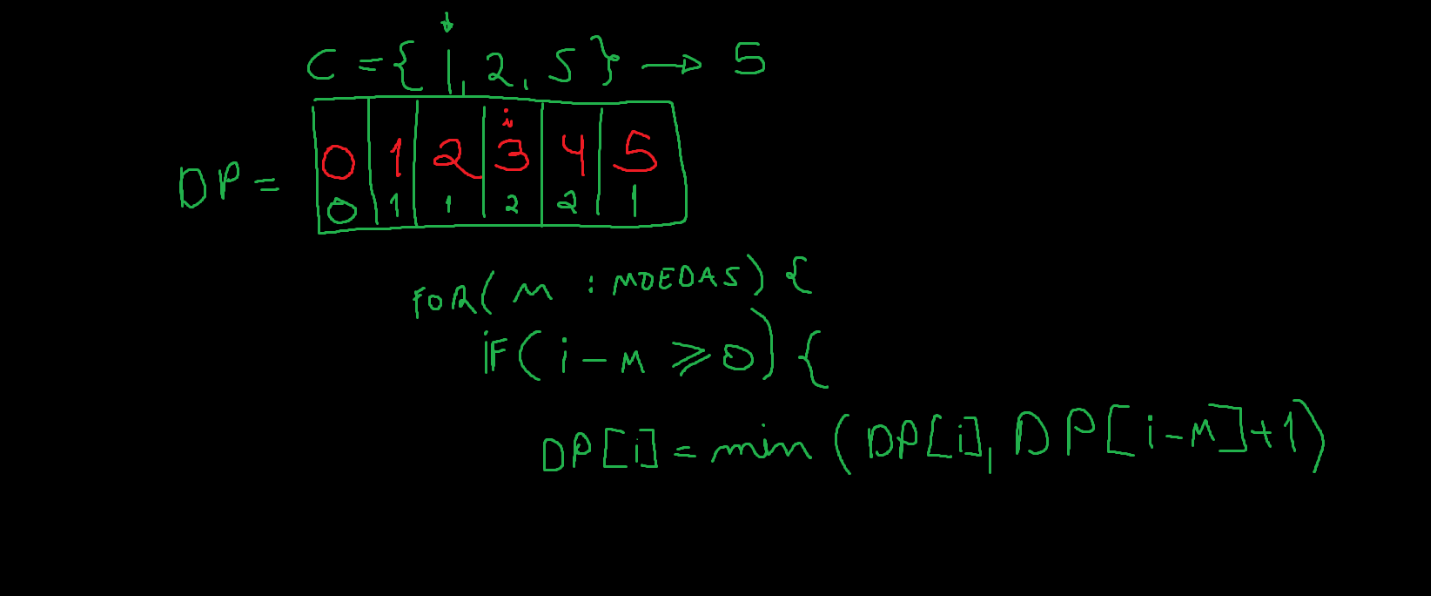 C = { 1, 2, 5 } → 5
i
0 1 2 3 4 5
DP =
0 1 1 2 2 1
FOR( M : MOEDAS) {
iF( i - M ⩾ 0) {
DP[i] = min (DP[i], DP[i-M]+1)